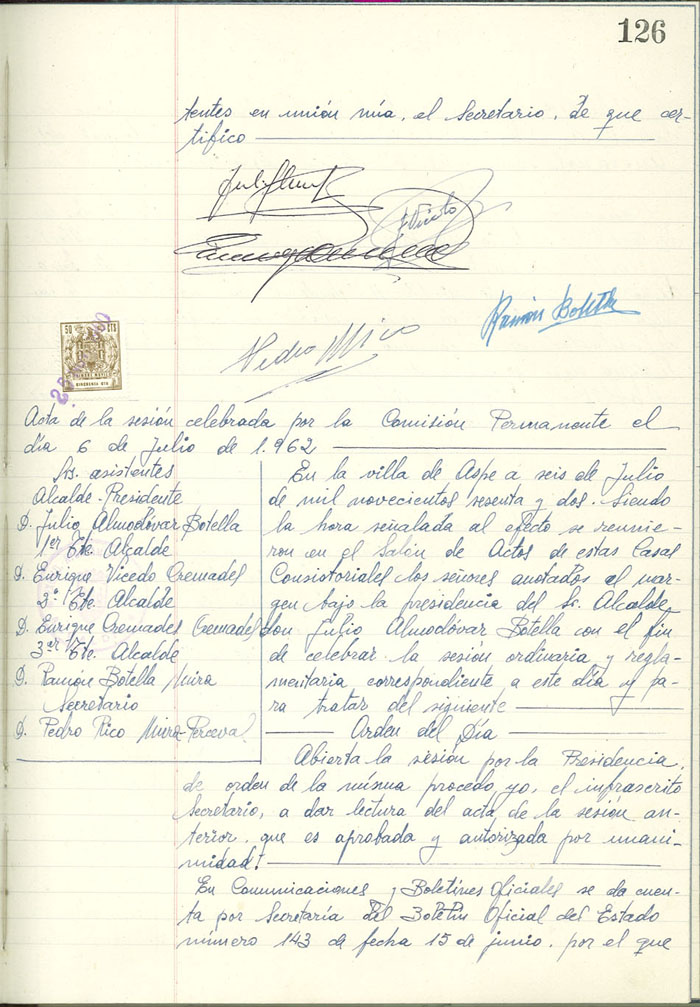 126
tentes en unión mía, el Secretario, de que cer-
tifico
F Vicedo
Ramón Botella
Pedro Mico
50 CTS
Acta de la sesión celebrada por la Comisión Permanente el
día 6 de Julio de 1.962
Srs. asistentes
Alcalde-Presidente
D. Julio Almodóvar Botella
1er Tte. Alcalde
D. Enrique Vicedo Cremades
2º Tte. Alcalde
D. Enrique Cremades Cremades
3er Tte. Alcalde
D. Ramón Botella Mira
Secretario
D. Pedro Rico Mira-Perceval
En la villa de Aspe a seis de Julio
de mil novecientos sesenta y dos. Siendo
la hora señalada al efecto se reunie-
ron en el Salón de Actos de estas Casas
Consistoriales los señores anotados al mar-
gen bajo la presidencia del Sr. Alcalde,
don Julio Almodóvar Botella con el fin
de celebrar la sesión ordinaria y regla-
mentaria, correspondiente a este día y pa-
ra tratar del siguiente
Orden del Día
Abierta la sesión por la Presidencia,
de orden de la misma procedo, yo, el infrascrito
Secretario, a dar lectura del acta de la sesión an-
terior, que es aprobada y autorizada por unani-
midad.
En Comunicaciones y Boletines Oficiales se da cuen-
ta por Secretaría del Boletín Oficial del Estado
número 143 de fecha 15 de junio, por el que